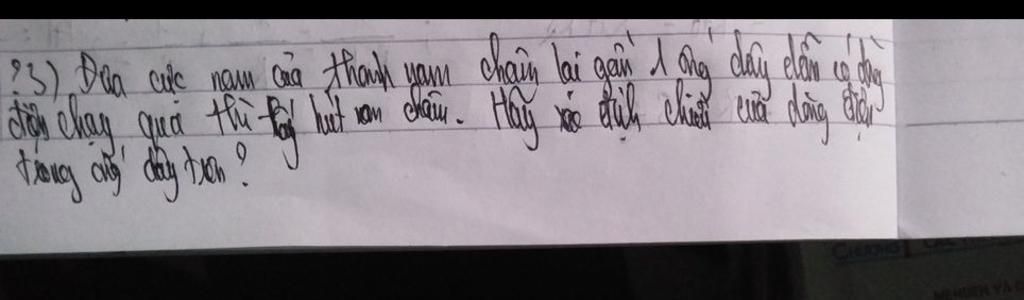 ?3) Đưa cực nam của thanh nam châm lại gần 1 ống dây dẫn có dòng
điện chạy qua thì thấy hút nam châm. Hãy xác định chiều của dòng điện
trong ống dây trên?
CHƯƠNG